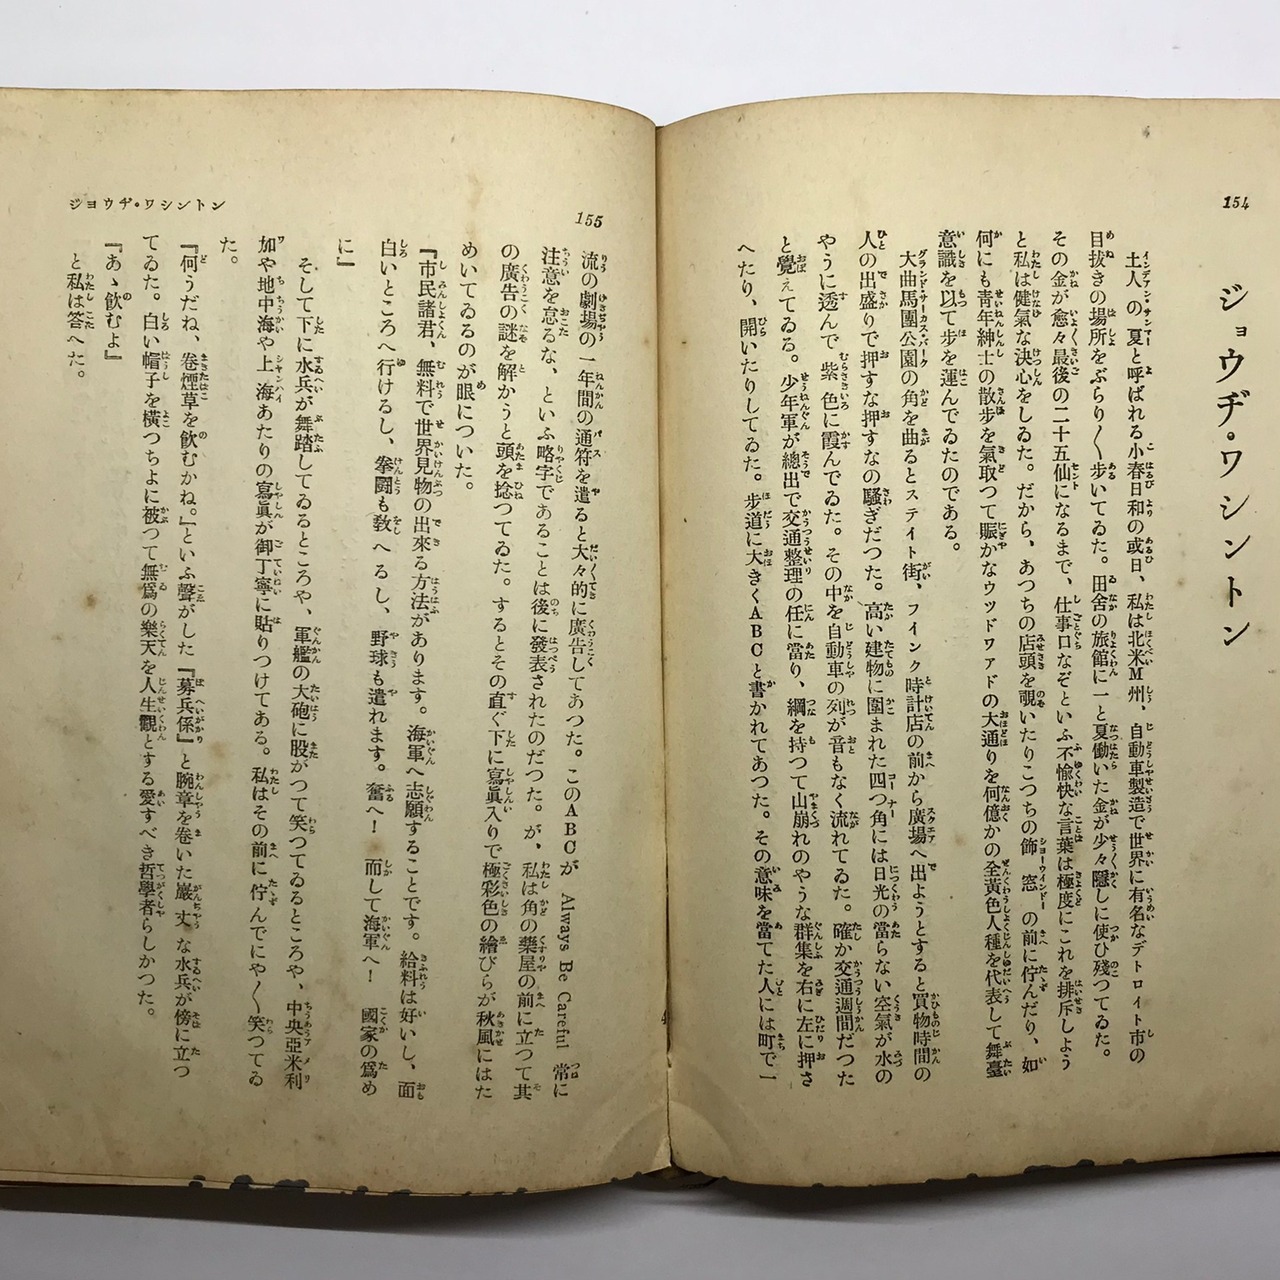 154
ジョウヂ・ワシントン
土人の夏と呼ばれる小春日和の或日、私は北米M州、自動車製造で世界に有名なデトロイト市の
目抜きの場所をぶらり〱歩いてゐた。田舍の旅館に一と夏働いた金が少々隱しに使ひ殘つてゐた。
その金が愈々最後の二十五仙になるまで、仕事口なぞといふ不愉快な言葉は極度にこれを排斥しよう
と私は健氣な決心をしゐた。だから、あつちの店頭を覗いたりこつちの飾窓の前に佇んだり、如
何にも靑年紳士の散步を氣取つて賑かなウッドワアドの大通りを何億かの全黃色人種を代表して舞臺
意識を以て步を運んでゐたのである。
大曲馬團公園の角を曲るとステイト街、フインク時計店の前から廣場へ出ようとすると買物時間の
人の出盛りで押すな押すなの騷ぎだつた。高い建物に圍まれた四つ角には日光の當らない空氣が水の
やうに透んで紫色に霞んでゐた。その中を自動車の列が音もなく流れてゐた。確か交通週間だつた
と覺えてゐる。少年軍が總出で交通整理の任に當り、綱を持つて山崩れのやうな群集を右に左に押さ
へたり、開いたりしてゐた。步道に大きくABCと書かれてあつた。その意味を當てた人には町で一
155
ジョウヂ・ワシントン
流の劇場の一年間の通符を遣ると大々的に廣告してあつた。このABCが Always Be Careful 常に
注意を怠るな、といふ略字であることは後に發表されたのだつた。が、私は角の藥屋の前に立つて其
の廣告の謎を解かうと頭を捻つてゐた。するとその直ぐ下に寫眞入りで極彩色の繪びらが秋風にはた
めいてゐるのが眼についた。
『市民諸君、無料で世界見物の出來る方法があります。海軍へ志願することです。給料は好いし、面
白いところへ行けるし、拳鬪も敎へるし、野球も遣れます。奮へ！ 而して海軍へ！ 國家の爲め
に』
そして下に水兵が舞踏してゐるところや、軍艦の大砲に股がつて笑つてゐるところや、中央亞米利
如や地中海や上海あたりの寫眞が御丁寧に貼りつけてある。私はその前に佇んでにや〱笑つてゐ
た。
『何うだね、卷煙草を飮むかね。』といふ聲がした『募兵係』と腕章を卷いた巖丈な水兵が傍に立つ
てゐた。白い帽子を橫つちよに被つて無爲の樂天を人生觀とする愛すべき哲學者らしかつた。
『あゝ飮むよ』
と私は答へた。